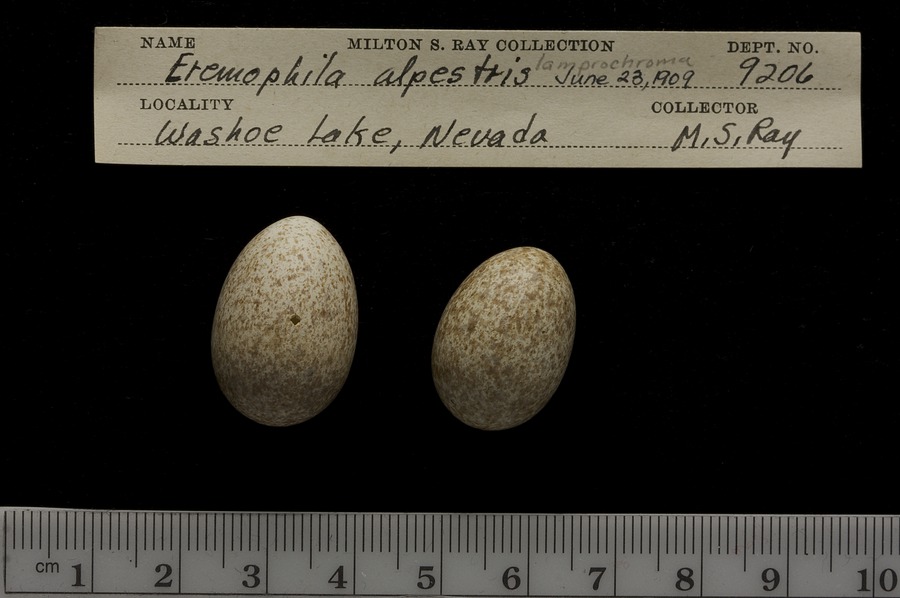 NAME MILTON S. RAY COLLECTION DEPT. NO.
Eremophila alpestris lamprochroma June 23, 1909 9206
LOCALITY COLLECTOR
Washoe Lake, Nevada M. S. Ray
cm 1 2 3 4 5 6 7 8 9 10